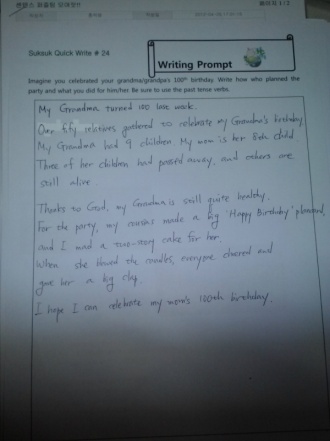 Suksuk Quick Write # 24
Writing Prompt
Imagine you celebrated your grandma/grandpa's 100th birthday. Write how who planned
the party and what you did for him/her. Be sure to use the past tense verbs.
My Grandma turned 100 last week.
Our fifty relatives gathered to celebrate my Grandma's birthday.
My Grandma had 9 children. My mom is her 8th child.
Three of her children had passed away, and others are
still alive.
Thanks to God, my Grandma is still quite healthy.
For the party, my cousins made a big 'Happy Birthday' placard,
and I made a two-story cake for her.
When she blowed the candles, everyone cheered and
gave her a big clap.
I hope I can celebrate my mom's 100th birthday.